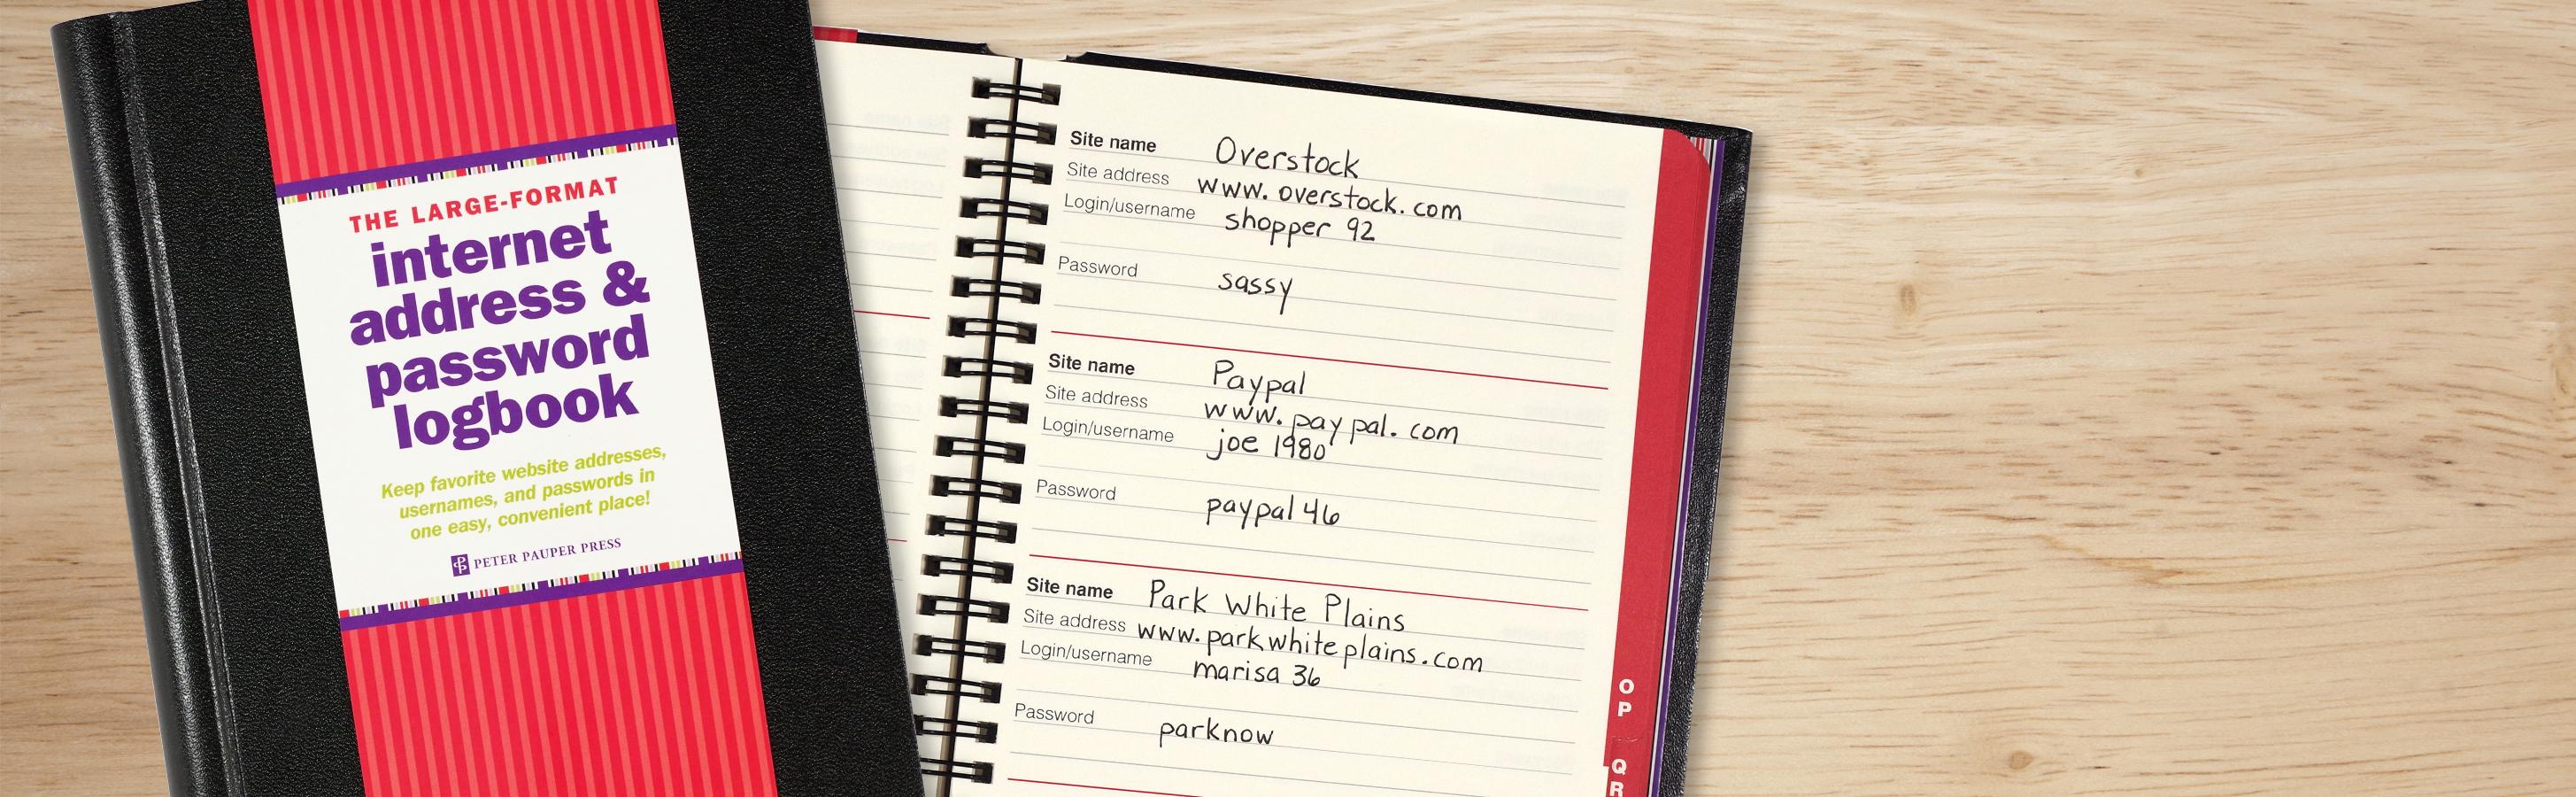 THE LARGE-FORMAT
internet
address &
password
logbook
Keep favorite website addresses,
usernames, and passwords in
one easy, convenient place!
PETER PAUPER PRESS
Site name Overstock
Site address www.overstock.com
Login/username shopper 92
Password sassy
Site name Paypal
Site address www.paypal.com
Login/username joe 1980
Password paypal 46
Site name Park White Plains
Site address www.parkwhiteplains.com
Login/username marisa 36
Password parknow
O
P
Q
R